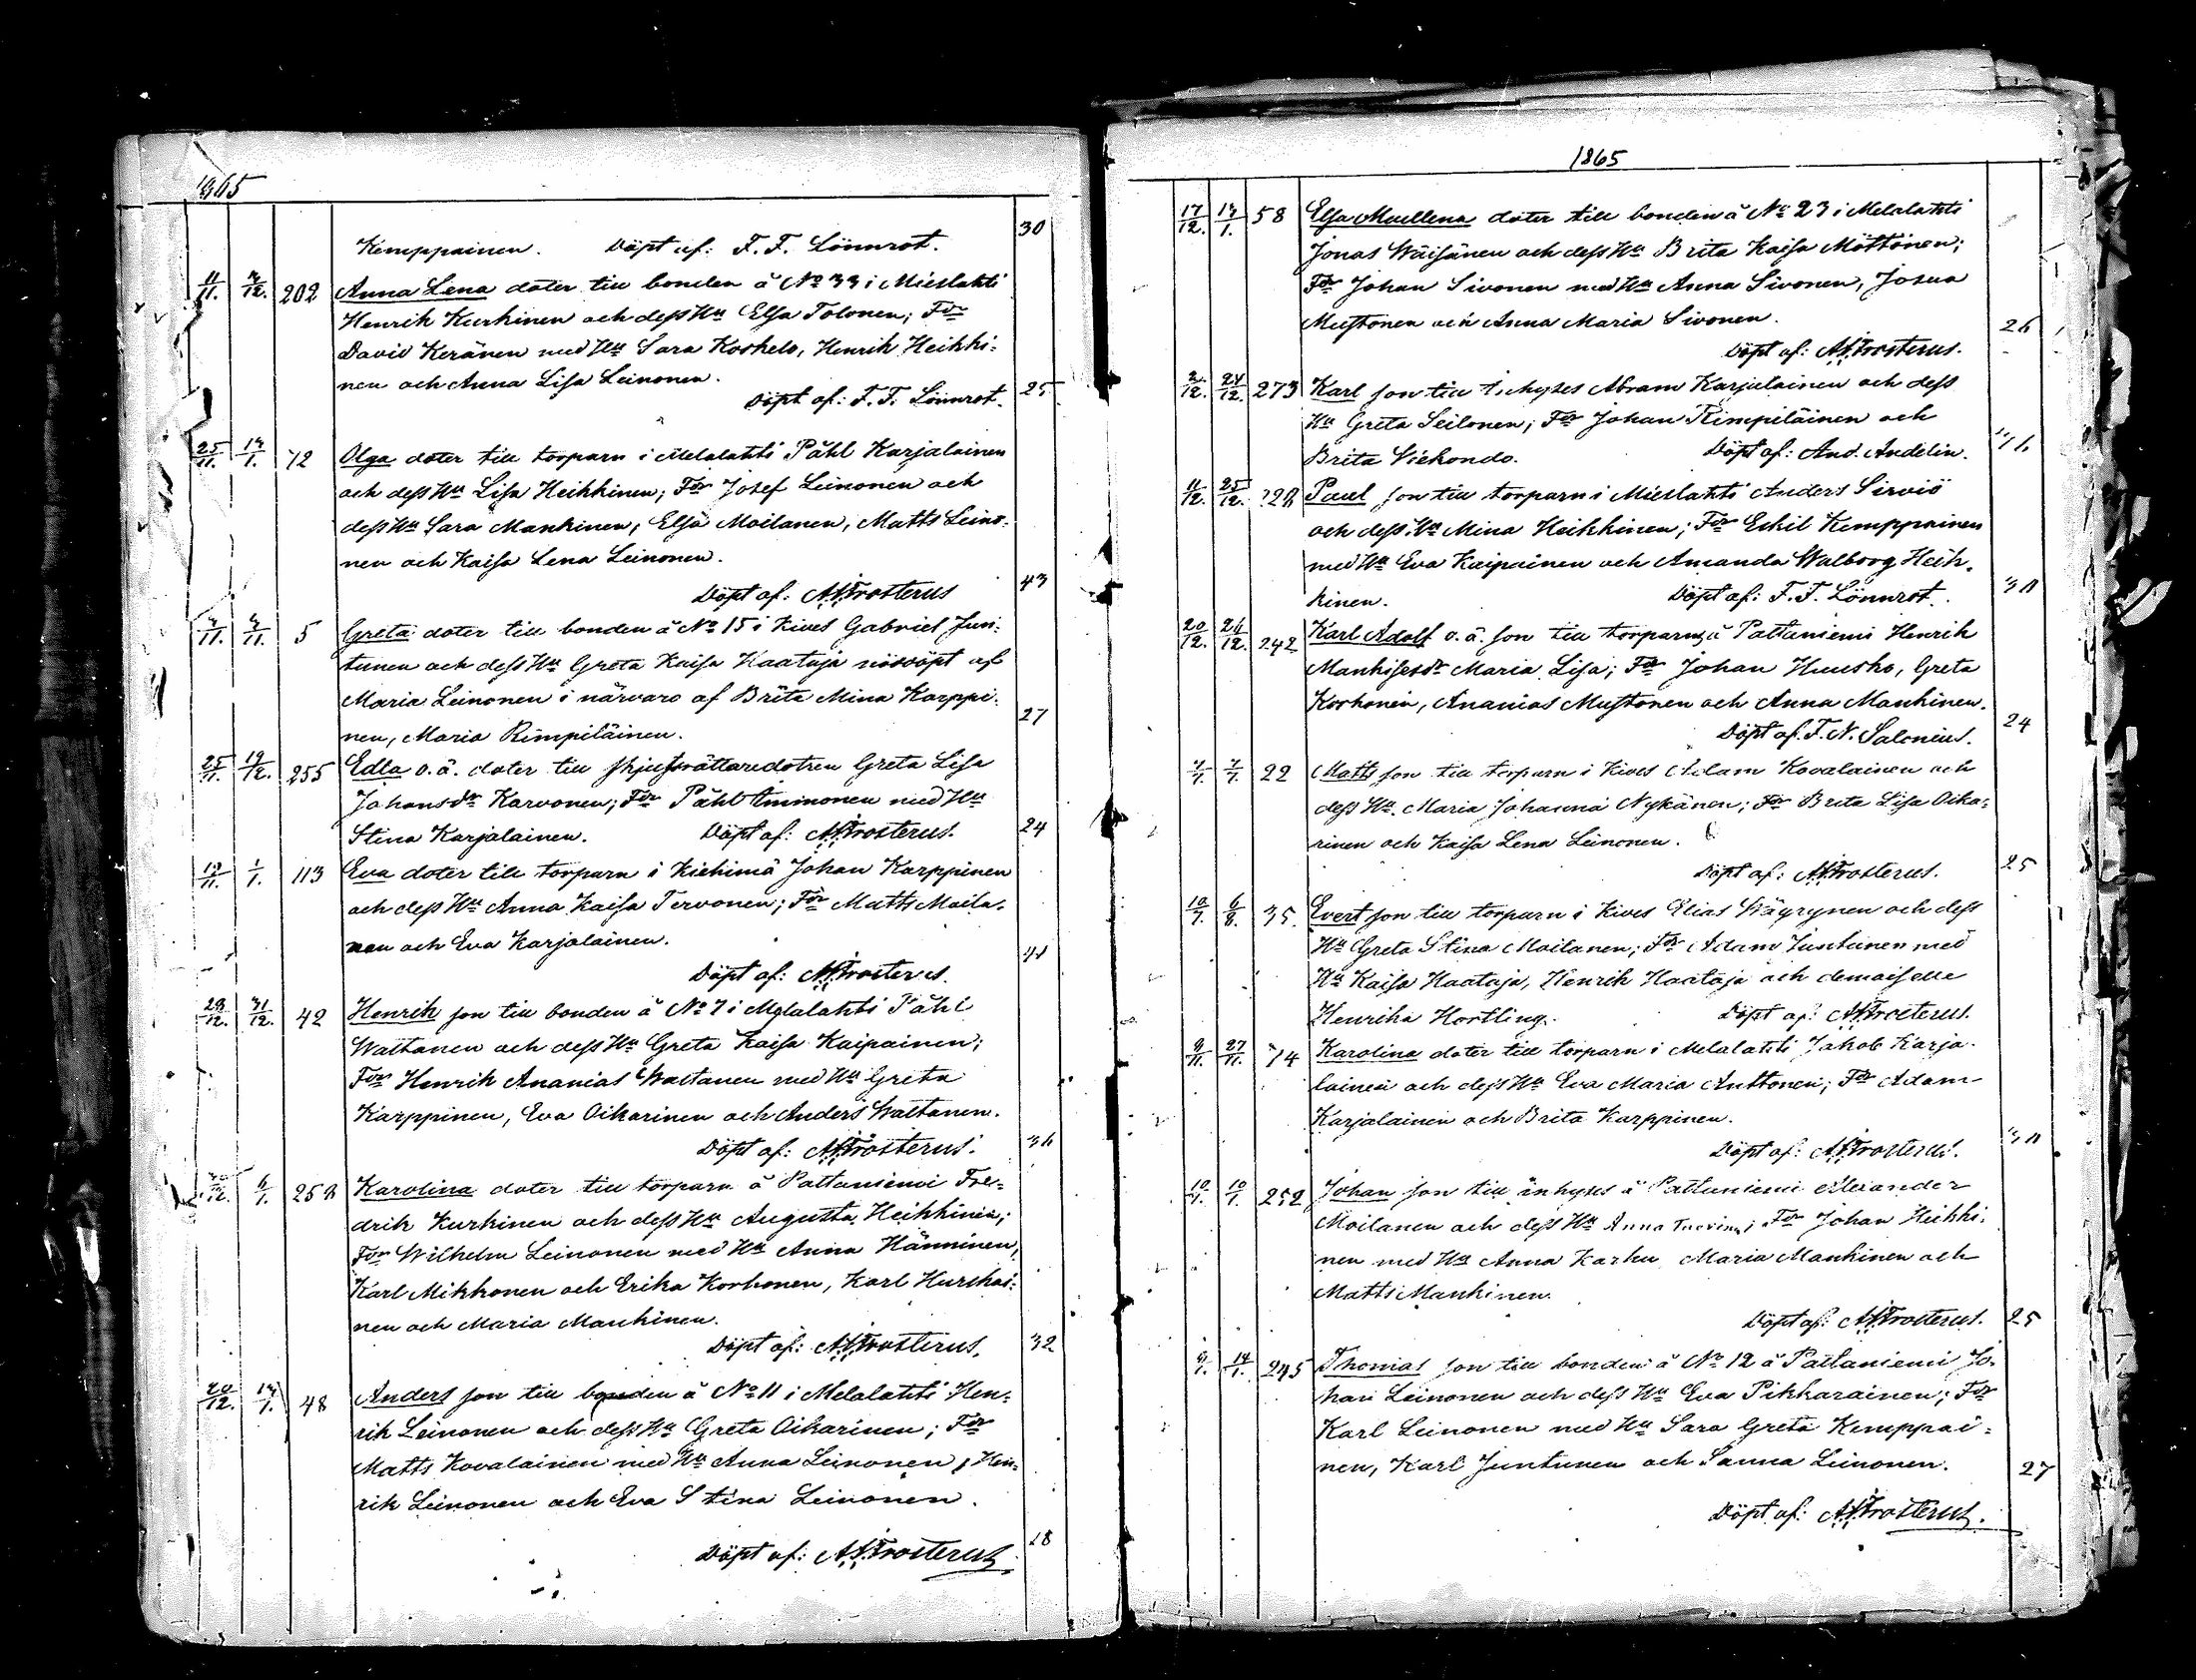 1865
30
Kemppainen. Döpt af: F. F. Lönnrot.
11/11. 3/12. 202 Anna Lena doter till bonden å No 33 i Mieslahti
Henrik Kurkinen och dess Hu Elsa Tolonen; Fdr
David Keränen med Hu Sara Koskelo, Henrik Heikki-
nen och Anna Lisa Leinonen.
Döpt af: F. F. Lönnrot. 25
25/11. 14/1. 72 Olga doter till torparn i Melalahti Påhl Karjalainen
och dess Hu Lisa Heikkinen; Fdr Josef Leinonen och
dess Hu Sara Mankinen, Elsa Moilanen, Matts Leino-
nen och Kaisa Lena Leinonen.
Döpt af: A. Frosterus 43
5 Greta doter till bonden å No 15 i Kives Gabriel Jun-
tunen och dess Hu Greta Kaisa Haataja nöddöpt af
Maria Leinonen i närvaro af Brita Mina Karppi-
nen, Maria Rimpiläinen. 27
25/11. 19/12. 255 Edla o.ä. doter till skjutsrättaredotren Greta Lisa
Johansdr Karvonen; Fdr Påhl Imminonen med Hu
Stina Karjalainen. Döpt af: A. Frosterus. 24
19/11. 1/1. 113 Eva doter till torparn i Kiehimä Johan Karppinen
och dess Hu Anna Kaisa Tervonen; Fdr Matts Moila-
nen och Eva Karjalainen.
Döpt af: A. Frosterus.
28/12. 31/12. 42 Henrik son till bonden å No 7 i Melalahti Påhl
Waltanen och dess Hu Greta Kaisa Kaipainen;
Fdr Henrik Ananias Waltanen med Hu Greta
Karppinen, Eva Oikarinen och Anders Waltanen.
Döpt af: A. Frosterus. 36
6/1. 258 Karolina doter till torparn å Paltaniemi Fre-
drik Kurkinen och dess Hu Augusta Heikkinen;
Fdr Wilhelm Leinonen med Hu Anna Hänninen,
Karl Mikkonen och Erika Korhonen, Karl Hurskai-
nen och Maria Mankinen.
Döpt af: A. Frosterus. 32
20/12. 14/1. 48 Anders son till bonden å No 11 i Melalahti Hen-
rik Leinonen och dess Hu Greta Oikarinen; Fdr
Matts Kovalainen med Hu Anna Leinonen, Hen-
rik Leinonen och Eva Stina Leinonen.
Döpt af: A. Frosterus. 28
1865
17/12. 14/1. 58 Elsa Mullena doter till bonden å No 23 i Melalahti
Jonas Wäisänen och dess Hu Brita Kaisa Möttönen;
Fdr Johan Sivonen med Hu Anna Sivonen, Josua
Mustonen och Anna Maria Sivonen. 26
Döpt af: A. Frosterus.
24/12. 273 Karl son till inhyses Abram Karjalainen och dess
Hu Greta Seilonen; Fdr Johan Rimpiläinen och
Brita Wiekondo. Döpt af: And. Andelin.
11/12. 25/12. 228 Paul son till torparn i Mieslahti Anders Sirviö
och dess Hu Mina Heikkinen; Fdr Eskil Kemppainen
med Hu Eva Kaipainen och Amanda Walborg Heik-
kinen. Döpt af: F. F. Lönnrot.
20/12. 26/12. 242 Karl Adolf o.ä. son till torparns å Paltaniemi Henrik
Mankisesdr Maria Lisa; Fdr Johan Huusko, Greta
Korhonen, Ananias Mustonen och Anna Mankinen.
Döpt af. F. N. Salenius. 24
22 Matts son till torparn i Kives Adam Kovalainen och
dess Hu Maria Johanna Nykänen; Fdr Brita Lisa Oika-
rinen och Kaisa Lena Leinonen.
Döpt af: A. Frosterus. 25
35. Evert son till torparn i Kives Elias Wäyrynen och dess
Hu Greta Stina Moilanen; Fdr Adam Juntunen med
Hu Kaisa Haataja, Henrik Haataja och demoiselle
Henrika Hortling. Döpt af: A. Frosterus.
9/11. 27/11. 74 Karolina doter till torparn i Melalahti Jakob Karja-
lainen och dess Hu Eva Maria Anttonen; Fdr Adam
Karjalainen och Brita Karppinen.
Döpt af: A. Frosterus.
10/1. 10/1. 252 Johan son till inhyses å Paltaniemi Alexander
Moilanen och dess Hu Anna Tuovinen; Fdr Johan Heikki-
nen med Hu Anna Karhu Maria Mankinen och
Matts Mankinen.
Döpt af: A. Frosterus. 25
14/1. 245 Thomas son till bonden å No 12 å Paltaniemi Jo-
han Leinonen och dess Hu Eva Pikkarainen; Fdr
Karl Leinonen med Hu Sara Greta Kemppai-
nen, Karl Juntunen och Sanna Leinonen. 27
Döpt af: A. Frosterus.